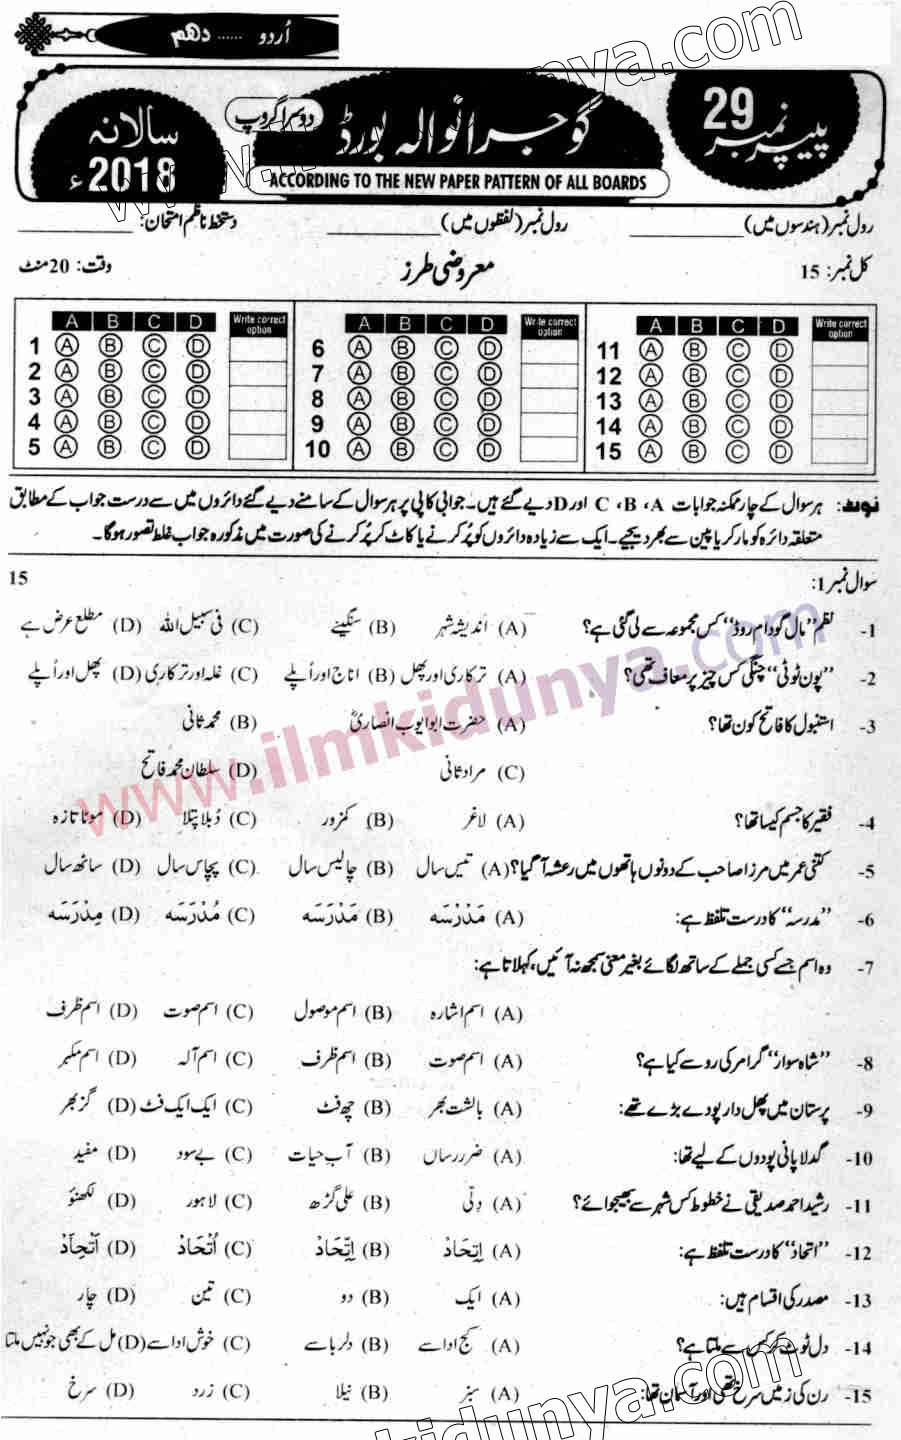 اُردو ...... دہم
پیپر نمبر 29
گوجرانوالہ بورڈ
دوسرا گروپ
سالانہ 2018ء
ACCORDING TO THE NEW PAPER PATTERN OF ALL BOARDS
رول نمبر (ہندسوں میں) ____________ رول نمبر (لفظوں میں) ____________ دستخط ناظم امتحان: ____________
کل نمبر: 15 معروضی طرز وقت: 20 منٹ
A B C D Write correct option A B C D Write correct option A B C D Write correct option
1 A B C D 6 A B C D 11 A B C D
2 A B C D 7 A B C D 12 A B C D
3 A B C D 8 A B C D 13 A B C D
4 A B C D 9 A B C D 14 A B C D
5 A B C D 10 A B C D 15 A B C D
نوٹ: ہر سوال کے چار ممکنہ جوابات A، B، C اور D دیے گئے ہیں۔ جوابی کاپی پر ہر سوال کے سامنے دیے گئے دائروں میں سے درست جواب کے مطابق
متعلقہ دائرہ کو مارکر یا پین سے بھر دیجیے۔ ایک سے زیادہ دائروں کو پُر کرنے یا کاٹ کر پُر کرنے کی صورت میں مذکورہ جواب غلط تصور ہوگا۔
سوال نمبر 1: 15
1- نظم "مال گودام روڈ" کس مجموعہ سے لی گئی ہے؟ (A) اندیشۂ شہر (B) سنگینے (C) فی سبیل اللہ (D) مطلع عرض ہے
2- "پون ٹوٹی" چنگی کس چیز پر معاف تھی؟ (A) ترکاری اور پھل (B) اناج اور اُپلے (C) غلہ اور ترکاری (D) پھل اور اُپلے
3- استنبول کا فاتح کون تھا؟ (A) حضرت ابو ایوب انصاریؓ (B) محمد ثانی
(C) مراد ثانی (D) سلطان محمد فاتح
4- فقیر کا جسم کیسا تھا؟ (A) لاغر (B) کمزور (C) دُبلا پتلا (D) موٹا تازہ
5- کتنی عمر میں مرزا صاحب کے دونوں ہاتھوں میں رعشہ آگیا؟ (A) تیس سال (B) چالیس سال (C) پچاس سال (D) ساٹھ سال
6- "مدرسہ" کا درست تلفظ ہے: (A) مَدْرِسَه (B) مَدْرَسَه (C) مُدْرَسَه (D) مِدْرَسَه
7- وہ اسم جسے کسی جملے کے ساتھ لگائے بغیر معنی سمجھ نہ آئیں، کہلاتا ہے:
(A) اسم اشارہ (B) اسم موصول (C) اسم صوت (D) اسم ظرف
8- "شاہ سوار" گرامر کی رو سے کیا ہے؟ (A) اسم صوت (B) اسم ظرف (C) اسم آلہ (D) اسم مکبر
9- پرستان میں پھل دار پودے بڑے تھے: (A) بالشت بھر (B) چھ فٹ (C) ایک ایک فٹ (D) گز بھر
10- گدلا پانی پودوں کے لیے تھا: (A) ضرر رساں (B) آبِ حیات (C) بے سود (D) مفید
11- رشید احمد صدیقی نے خطوط کس شہر سے بھیجوائے؟ (A) دِلّی (B) علی گڑھ (C) لاہور (D) لکھنؤ
12- "اتحاد" کا درست تلفظ ہے: (A) اِتِحَادْ (B) اِتِّحَادْ (C) اُتّحَادْ (D) اَتّحِاَدْ
13- مصدر کی اقسام ہیں: (A) ایک (B) دو (C) تین (D) چار
14- دل ٹوٹ کر کس سے ملتا ہے؟ (A) کج ادا سے (B) دلربا سے (C) خوش ادا سے (D) مل کے بھی جو نہیں ملتا
15- رن کی زمیں سرخ تھی اور آسمان تھا: (A) سبز (B) نیلا (C) زرد (D) سرخ
www.ilmkidunya.com